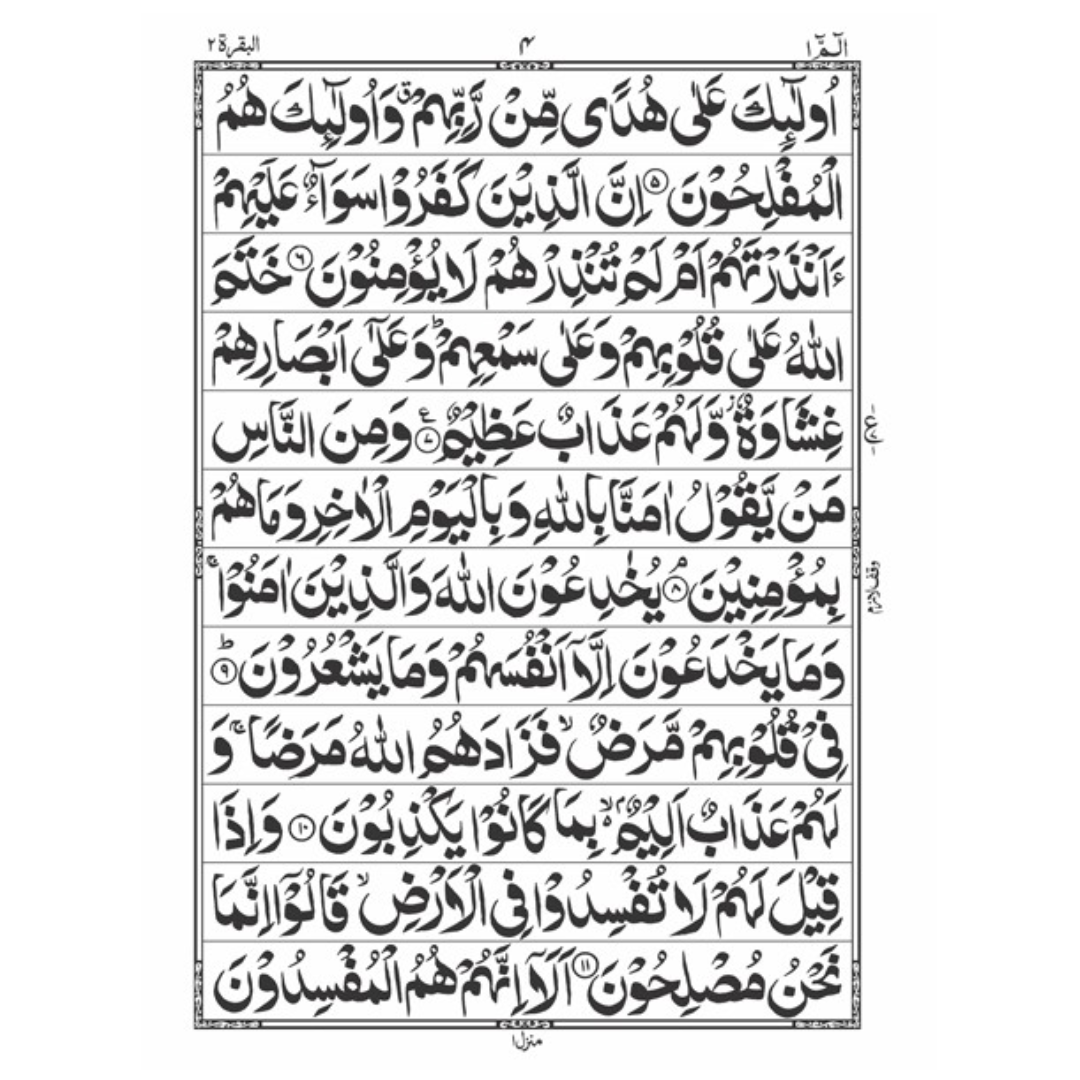 الٓمّٓ ۱
۴
البقرة ۲
اُولٰٓئِكَ عَلٰى هُدًى مِّنْ رَّبِّهِمْ ۗ وَاُولٰٓئِكَ هُمُ
الْمُفْلِحُوْنَ ۝۵ اِنَّ الَّذِيْنَ كَفَرُوْا سَوَآءٌ عَلَيْهِمْ
ءَاَنْذَرْتَهُمْ اَمْ لَمْ تُنْذِرْهُمْ لَا يُؤْمِنُوْنَ ۝۶ خَتَمَ
اللّٰهُ عَلٰى قُلُوْبِهِمْ وَعَلٰى سَمْعِهِمْ ؕ وَعَلٰٓى اَبْصَارِهِمْ
غِشَاوَةٌ ؗ وَّلَهُمْ عَذَابٌ عَظِيْمٌ ۝۷ ع وَمِنَ النَّاسِ
مَنْ يَّقُوْلُ اٰمَنَّا بِاللّٰهِ وَبِالْيَوْمِ الْاٰخِرِ وَمَا هُمْ
بِمُؤْمِنِيْنَ ۘ ۝۸ يُخٰدِعُوْنَ اللّٰهَ وَالَّذِيْنَ اٰمَنُوْا ۚ
وقف لازم
وَمَا يَخْدَعُوْنَ اِلَّاۤ اَنْفُسَهُمْ وَمَا يَشْعُرُوْنَ ؕ ۝۹
فِيْ قُلُوْبِهِمْ مَّرَضٌ ۙ فَزَادَهُمُ اللّٰهُ مَرَضًا ۚ وَ
لَهُمْ عَذَابٌ اَلِيْمٌۢ ۙ بِمَا كَانُوْا يَكْذِبُوْنَ ۝۱۰ وَاِذَا
قِيْلَ لَهُمْ لَا تُفْسِدُوْا فِى الْاَرْضِ ۙ قَالُوْۤا اِنَّمَا
نَحْنُ مُصْلِحُوْنَ ۝۱۱ اَلَاۤ اِنَّهُمْ هُمُ الْمُفْسِدُوْنَ
منزل ۱